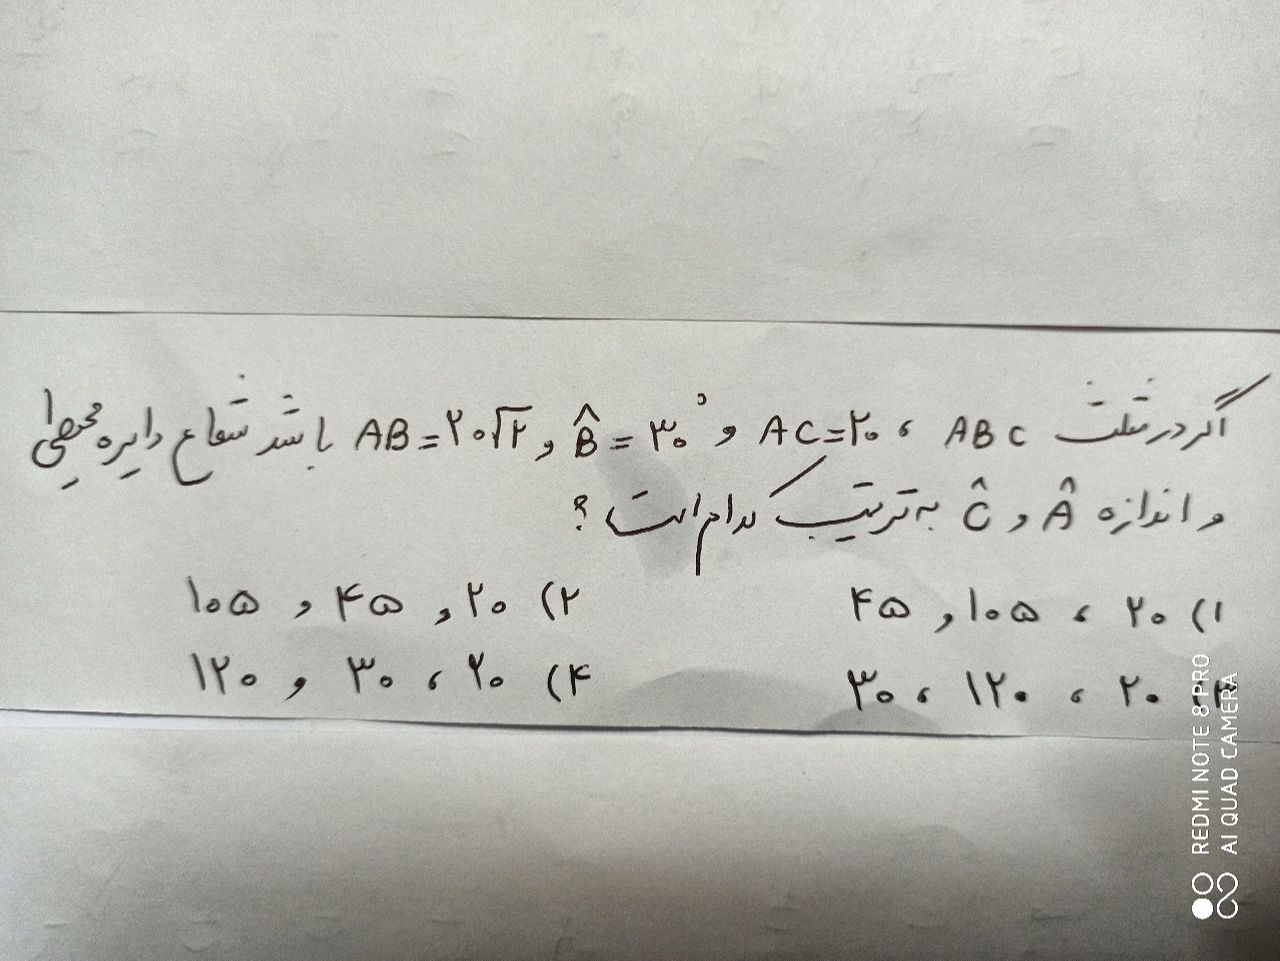 اگر در مثلث ABC ، AC=۲۰ و B̂=۳۰° و AB=۲۰√۲ باشد شعاع دایره محیطی
و اندازه Â و Ĉ به ترتیب کدام است ؟
۱) ۲۰ ، ۱۰۵ و ۴۵
۲) ۲۰ و ۴۵ و ۱۰۵
۳) ۲۰ ، ۱۲۰ ، ۳۰
۴) ۲۰ ، ۳۰ و ۱۲۰
REDMI NOTE 8 PRO
AI QUAD CAMERA